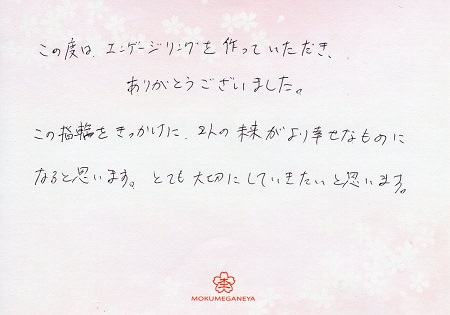 この度は、エンゲージリングを作っていただき、
ありがとうございました。
この指輪をきっかけに、2人の未来がより幸せなものに
なると思います。とても大切にしていきたいと思います。
杢
MOKUMEGANEYA